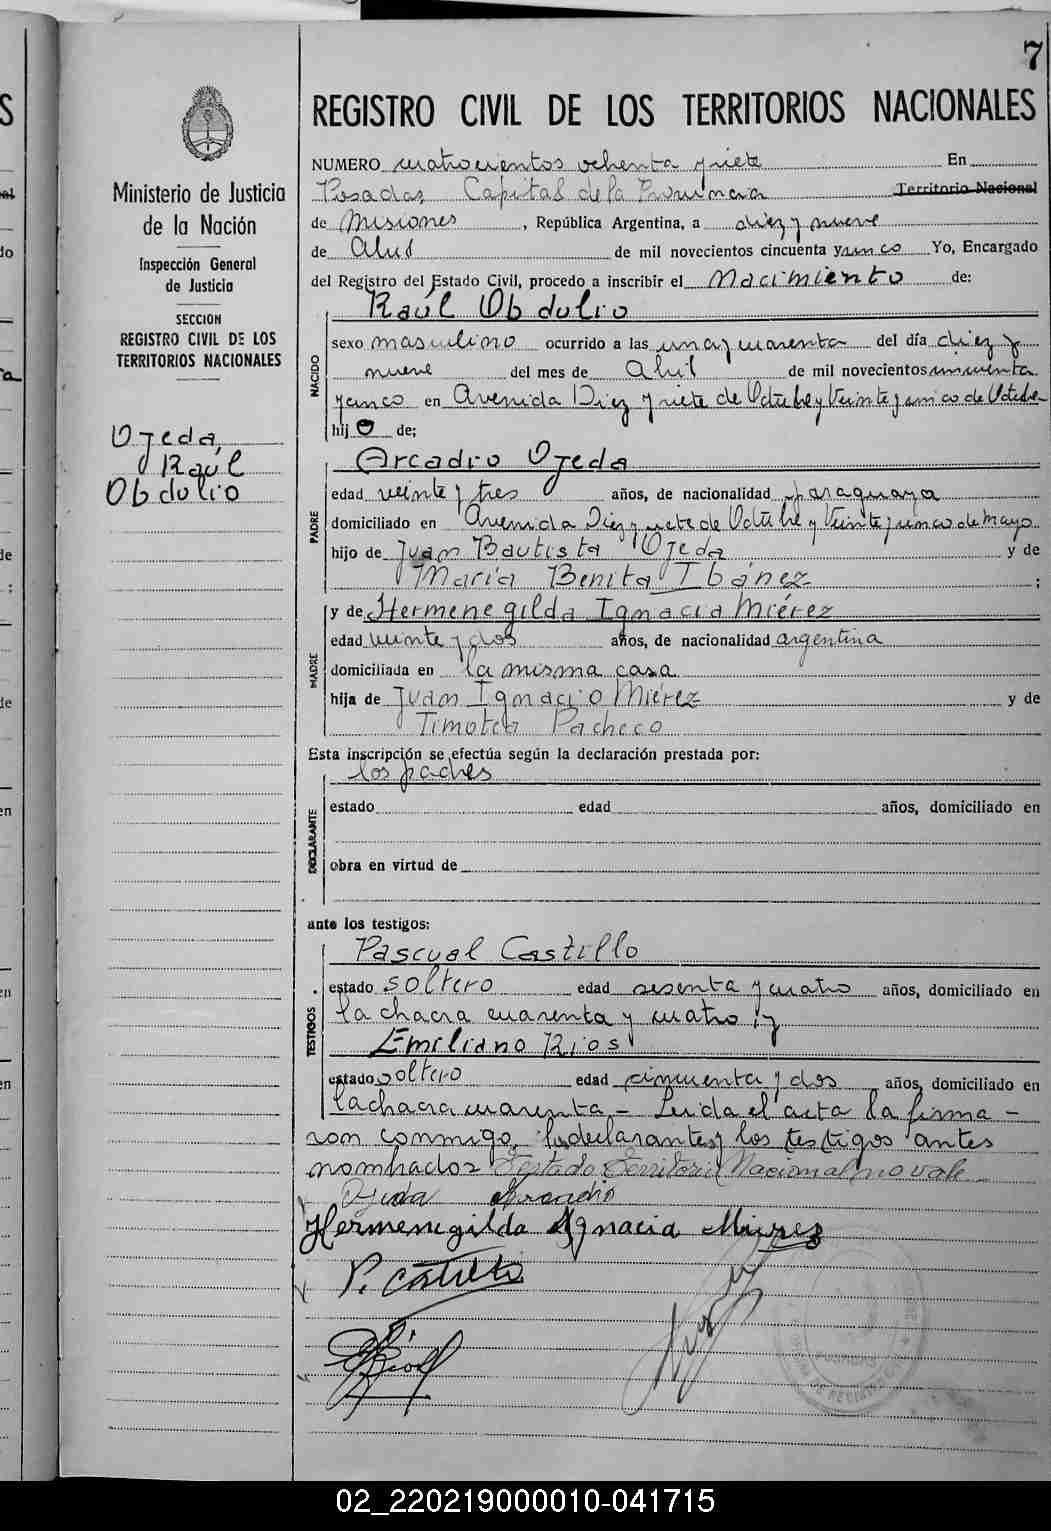 7
REGISTRO CIVIL DE LOS TERRITORIOS NACIONALES
Ministerio de Justicia
de la Nación
Inspección General
de Justicia
SECCION
REGISTRO CIVIL DE LOS
TERRITORIOS NACIONALES
Ojeda,
Raúl
Obdulio
NUMERO cuatrocientos ochenta y siete En
Posadas, Capital de la Provincia Territorio Nacional
de Misiones, República Argentina, a diez y nueve
de Abril de mil novecientos cincuenta y cinco Yo, Encargado
del Registro del Estado Civil, procedo a inscribir el Nacimiento de:
Raúl Obdulio
NACIDO
sexo masculino ocurrido a las una y cuarenta del día diez y
nueve del mes de Abril de mil novecientos cincuenta
y cinco en Avenida Diez y siete de Octubre y Veinte y cinco de Octubre
hijo de;
Arcadio Ojeda
PADRE
edad veinte y tres años, de nacionalidad paraguaya
domiciliado en Avenida Diez y siete de Octubre y Veinte y cinco de Mayo
hijo de Juan Bautista Ojeda y de
María Benita Ibánez ;
y de Hermenegilda Ignacia Miérez
MADRE
edad veinte y dos años, de nacionalidad argentina
domiciliada en la misma casa
hija de Juan Ignacio Miérez y de
Timotea Pacheco
Esta inscripción se efectúa según la declaración prestada por:
los padres
DECLARANTE
estado edad años, domiciliado en
obra en virtud de
ante los testigos:
Pascual Castillo
TESTIGOS
estado soltero edad sesenta y cuatro años, domiciliado en
la chacra cuarenta y cuatro, y
Emiliano Rios
estado soltero edad cincuenta y dos años, domiciliado en
la chacra cuarenta - Leida el acta la firma-
ron conmigo, los declarantes y los testigos antes
nombrados Testado Territorio Nacional no vale
Ojeda Arcadio
Hermenegilda Ignacia Mierez
P. Castillo
E Rios
POSADAS
02_220219000010-041715